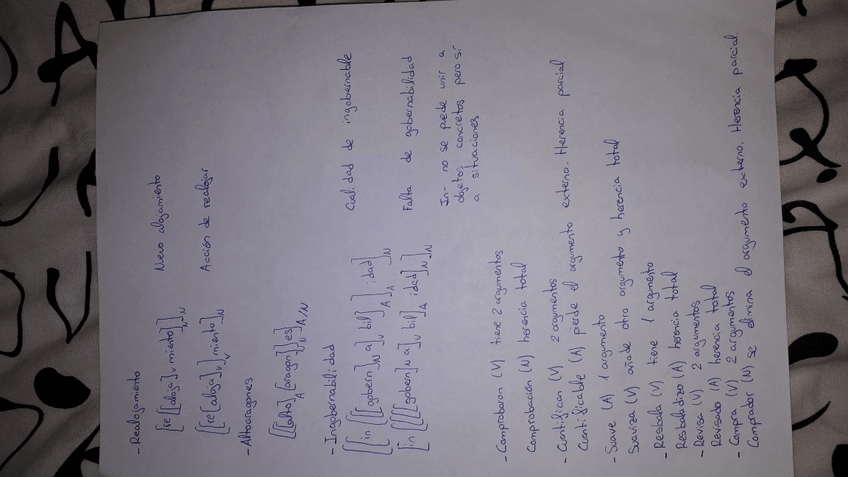 - Realojamiento
[re [[aloja]V miento]N]N Nuevo alojamiento
[[re [aloja]V]V miento]N Acción de realojar
- Altoaragones
[[[alto]A [aragon]]N es]A/N
- Ingobernabilidad
[[in [[[gobern]N a]V bil]A]A idad]N Calidad de ingobernable
[in [[[[gobern]N a]V bil]A idad]N]N Falta de gobernabilidad
In- no se puede unir a
objetos concretos pero sí
a situaciones
- Comprobaron (V) tiene 2 argumentos
Comprobación (N) herencia total
- Cuantifican (V) 2 argumentos
Cuantificable (A) pierde el argumento externo. Herencia parcial
- Suave (A) 1 argumento
Suaviza (V) añade otro argumento y herencia total
- Resbala (V) tiene 1 argumento
Resbaladizo (A) herencia total
- Revisa (V) 2 argumentos
Revisado (A) herencia total
- Compra (V) 2 argumentos
Comprador (N) se elimina el argumento externo. Herencia parcial